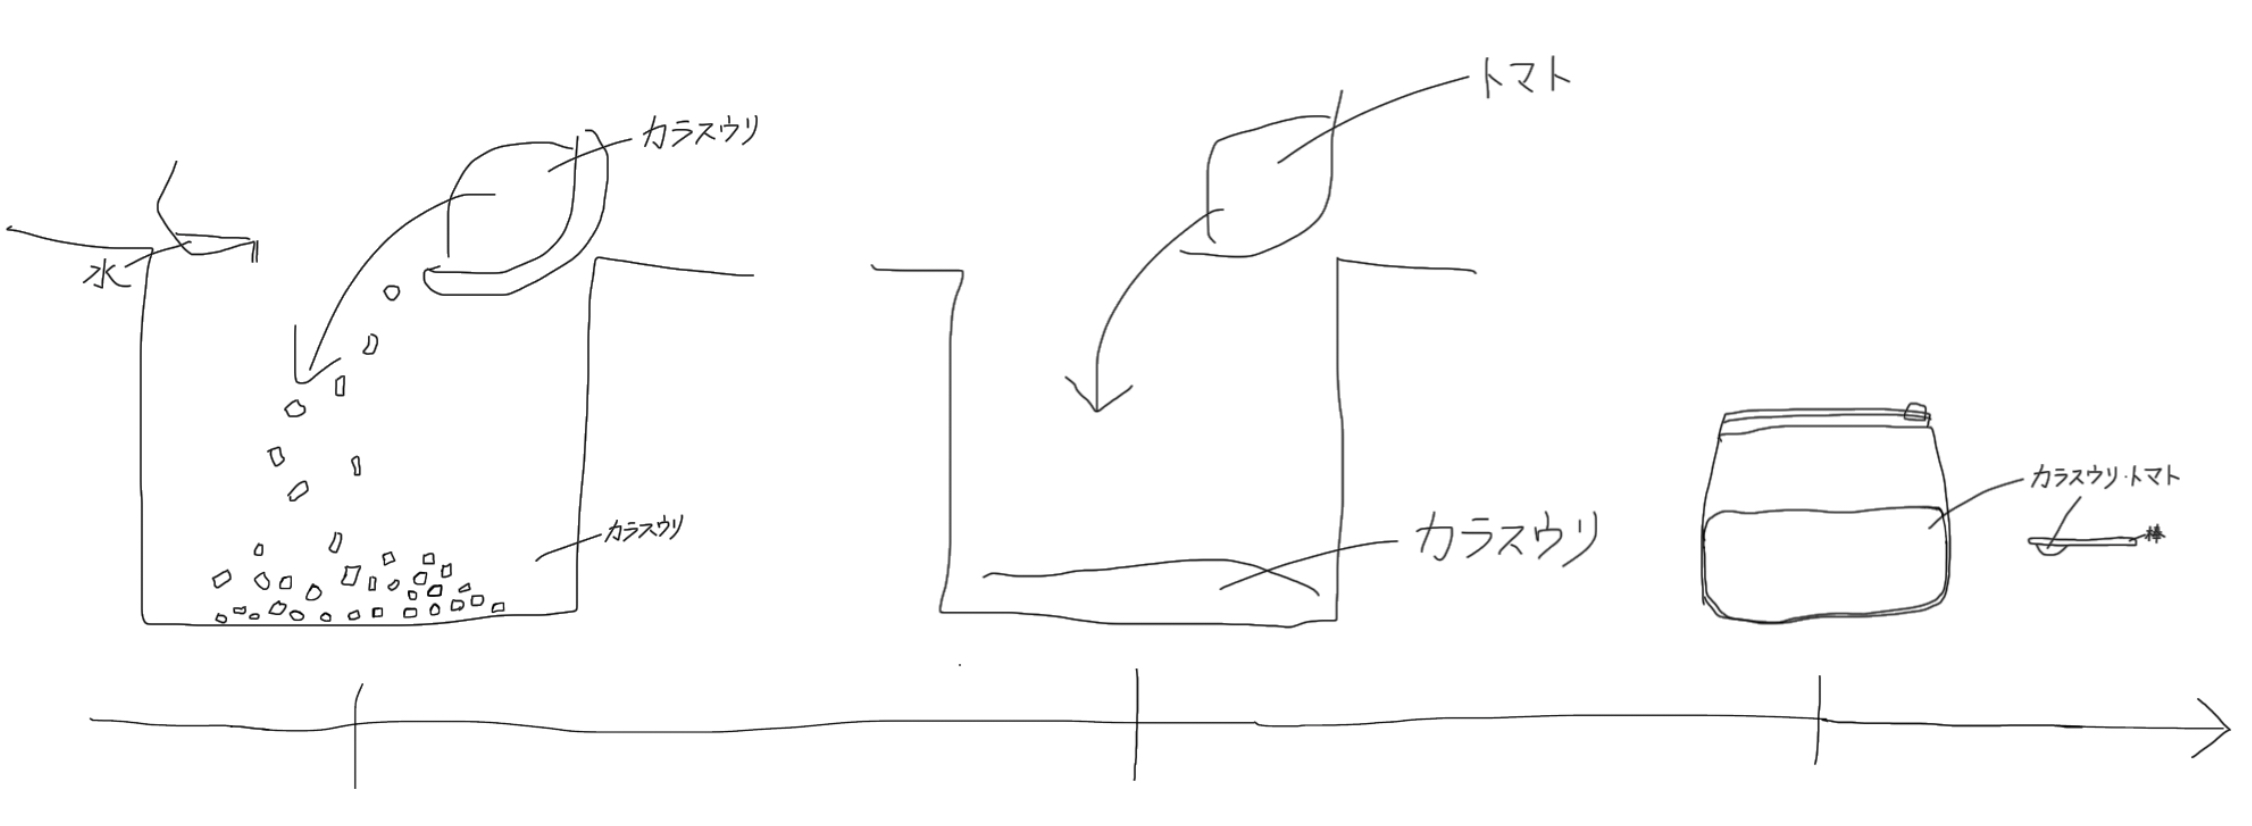 カラスウリ
水
カラスウリ
トマト
カラスウリ
カラスウリ・トマト
棒